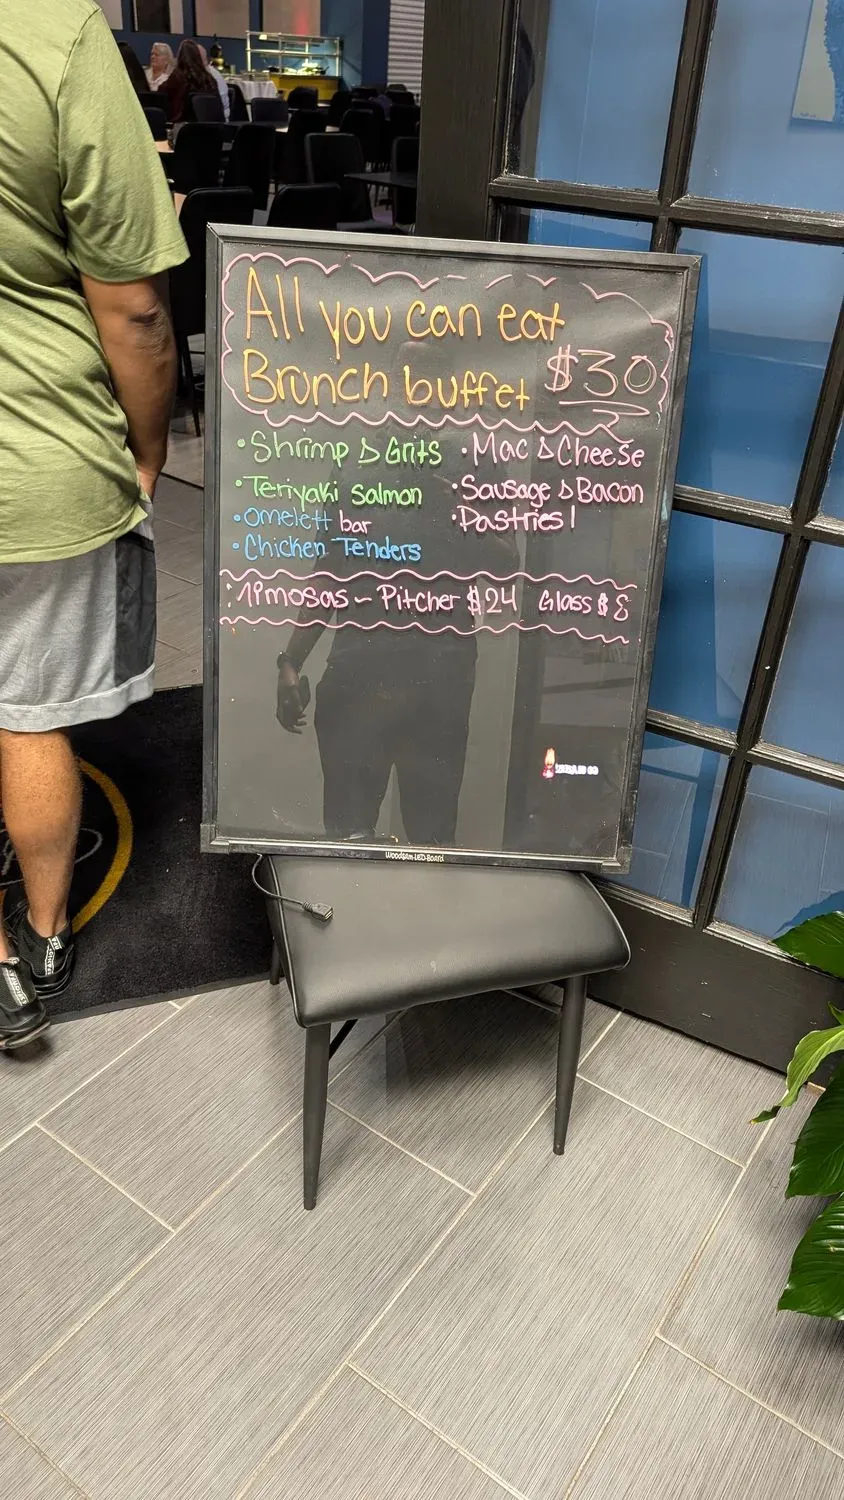 All you can eat
Brunch buffet $30
• Shrimp & Grits
• Teriyaki salmon
• omelett bar
• Chicken Tenders
• Mac & Cheese
• Sausage & Bacon
• Pastries!
Mimosas - Pitcher $24 Glass $8
Woodsam LED-Board